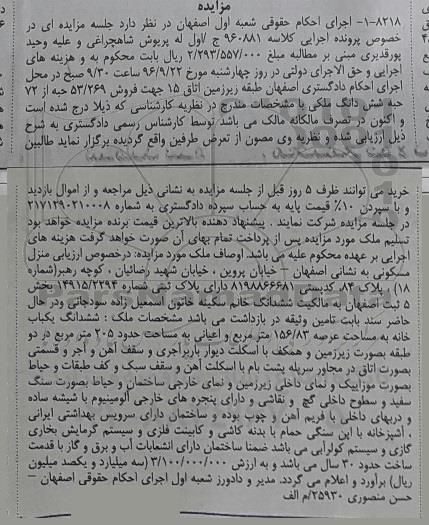 مزایده
۱-۸۲۱۸- اجرای احکام حقوقی شعبه اول اصفهان در نظر دارد جلسه مزایده ای در
خصوص پرونده اجرایی کلاسه ۹۶۰۸۸۱ ج /اول له پریوش شاهچراغی و علیه وحید
پورقدیری مبنی بر مطالبه مبلغ ۲/۲۹۳/۵۵۷/۰۰۰ ریال بابت محکوم به و هزینه های
اجرایی و حق الاجرای دولتی در روز چهارشنبه مورخ ۹۶/۹/۲۲ ساعت ۹/۳۰ صبح در محل
اجرای احکام دادگستری اصفهان طبقه زیرزمین اتاق ۱۵ جهت فروش ۵۳/۲۶۹ حبه از ۷۲
حبه شش دانگ ملکی با مشخصات مندرج در نظریه کارشناسی که ذیلا درج شده است
و اکنون در تصرف مالکانه مالک می باشد توسط کارشناس رسمی دادگستری به شرح
ذیل ارزیابی شده و نظریه وی مصون از تعرض طرفین واقع گردیده برگزار نماید طالبین
خرید می توانند ظرف ۵ روز قبل از جلسه مزایده به نشانی ذیل مراجعه و از اموال بازدید
و با سپردن ۱۰٪ قیمت پایه به حساب سپرده دادگستری به شماره ۲۱۷۱۲۹۰۲۱۰۰۰۸
در جلسه مزایده شرکت نمایند . پیشنهاد دهنده بالاترین قیمت برنده مزایده خواهد بود
تسلیم ملک مورد مزایده پس از پرداخت تمام بهای آن صورت خواهد گرفت هزینه های
اجرایی بر عهده محکوم علیه می باشد. اوصاف ملک مورد مزایده: درخصوص ارزیابی منزل
مسکونی به نشانی اصفهان - خیابان پروین ، خیابان شهید رضائیان ، کوچه رهبر(شماره
۱۸) ، پلاک ۸۴، کدپستی ۸۱۹۸۸۶۶۶۸۱ دارای پلاک ثبتی شماره ۱۴۹۱۵/۲۲۹۴ بخش
۵ ثبت اصفهان به مالکیت ششدانگ خانم سکینه خاتون اسمعیل زاده سودجانی ودر حال
حاضر سند بابت تامین وثیقه در بازداشت می باشد مشخصات ملک : ششدانگ یکباب
خانه به مساحت عرصه ۱۵۶/۸۳ متر مربع و اعیانی به مساحت حدود ۲۰۵ متر مربع در دو
طبقه بصورت زیرزمین و همکف با اسکلت دیوار باربرآجری و سقف آهن و آجر و قسمتی
بصورت اتاق در مجاور سرپله پشت بام با اسکلت آهن و سقف سبک و کف طبقات و حیاط
بصورت موزاییک و نمای داخلی زیرزمین و نمای خارجی ساختمان و حیاط بصورت سنگ
سفید و سطوح داخلی گچ و نقاشی و دارای پنجره های خارجی آلومینیوم با شیشه ساده
و دربهای داخلی با فریم آهن و چوب بوده و ساختمان دارای سرویس بهداشتی ایرانی
، آشپزخانه با اپن سنگی حمام با بدنه کاشی و کابینت فلزی و سیستم گرمایش بخاری
گازی و سیستم کولرآبی می باشد ضمنا ساختمان دارای انشعابات آب و برق و گاز با قدمت
ساخت حدود ۳۰ سال می باشد و به ارزش ۳/۱۰۰/۰۰۰/۰۰۰ (سه میلیارد و یکصد میلیون
ریال) برآورد و اعلام می گردد. مدیر و دادورز شعبه اول اجرای احکام حقوقی اصفهان -
حسن منصوری ۲۵۹۳۰/م الف